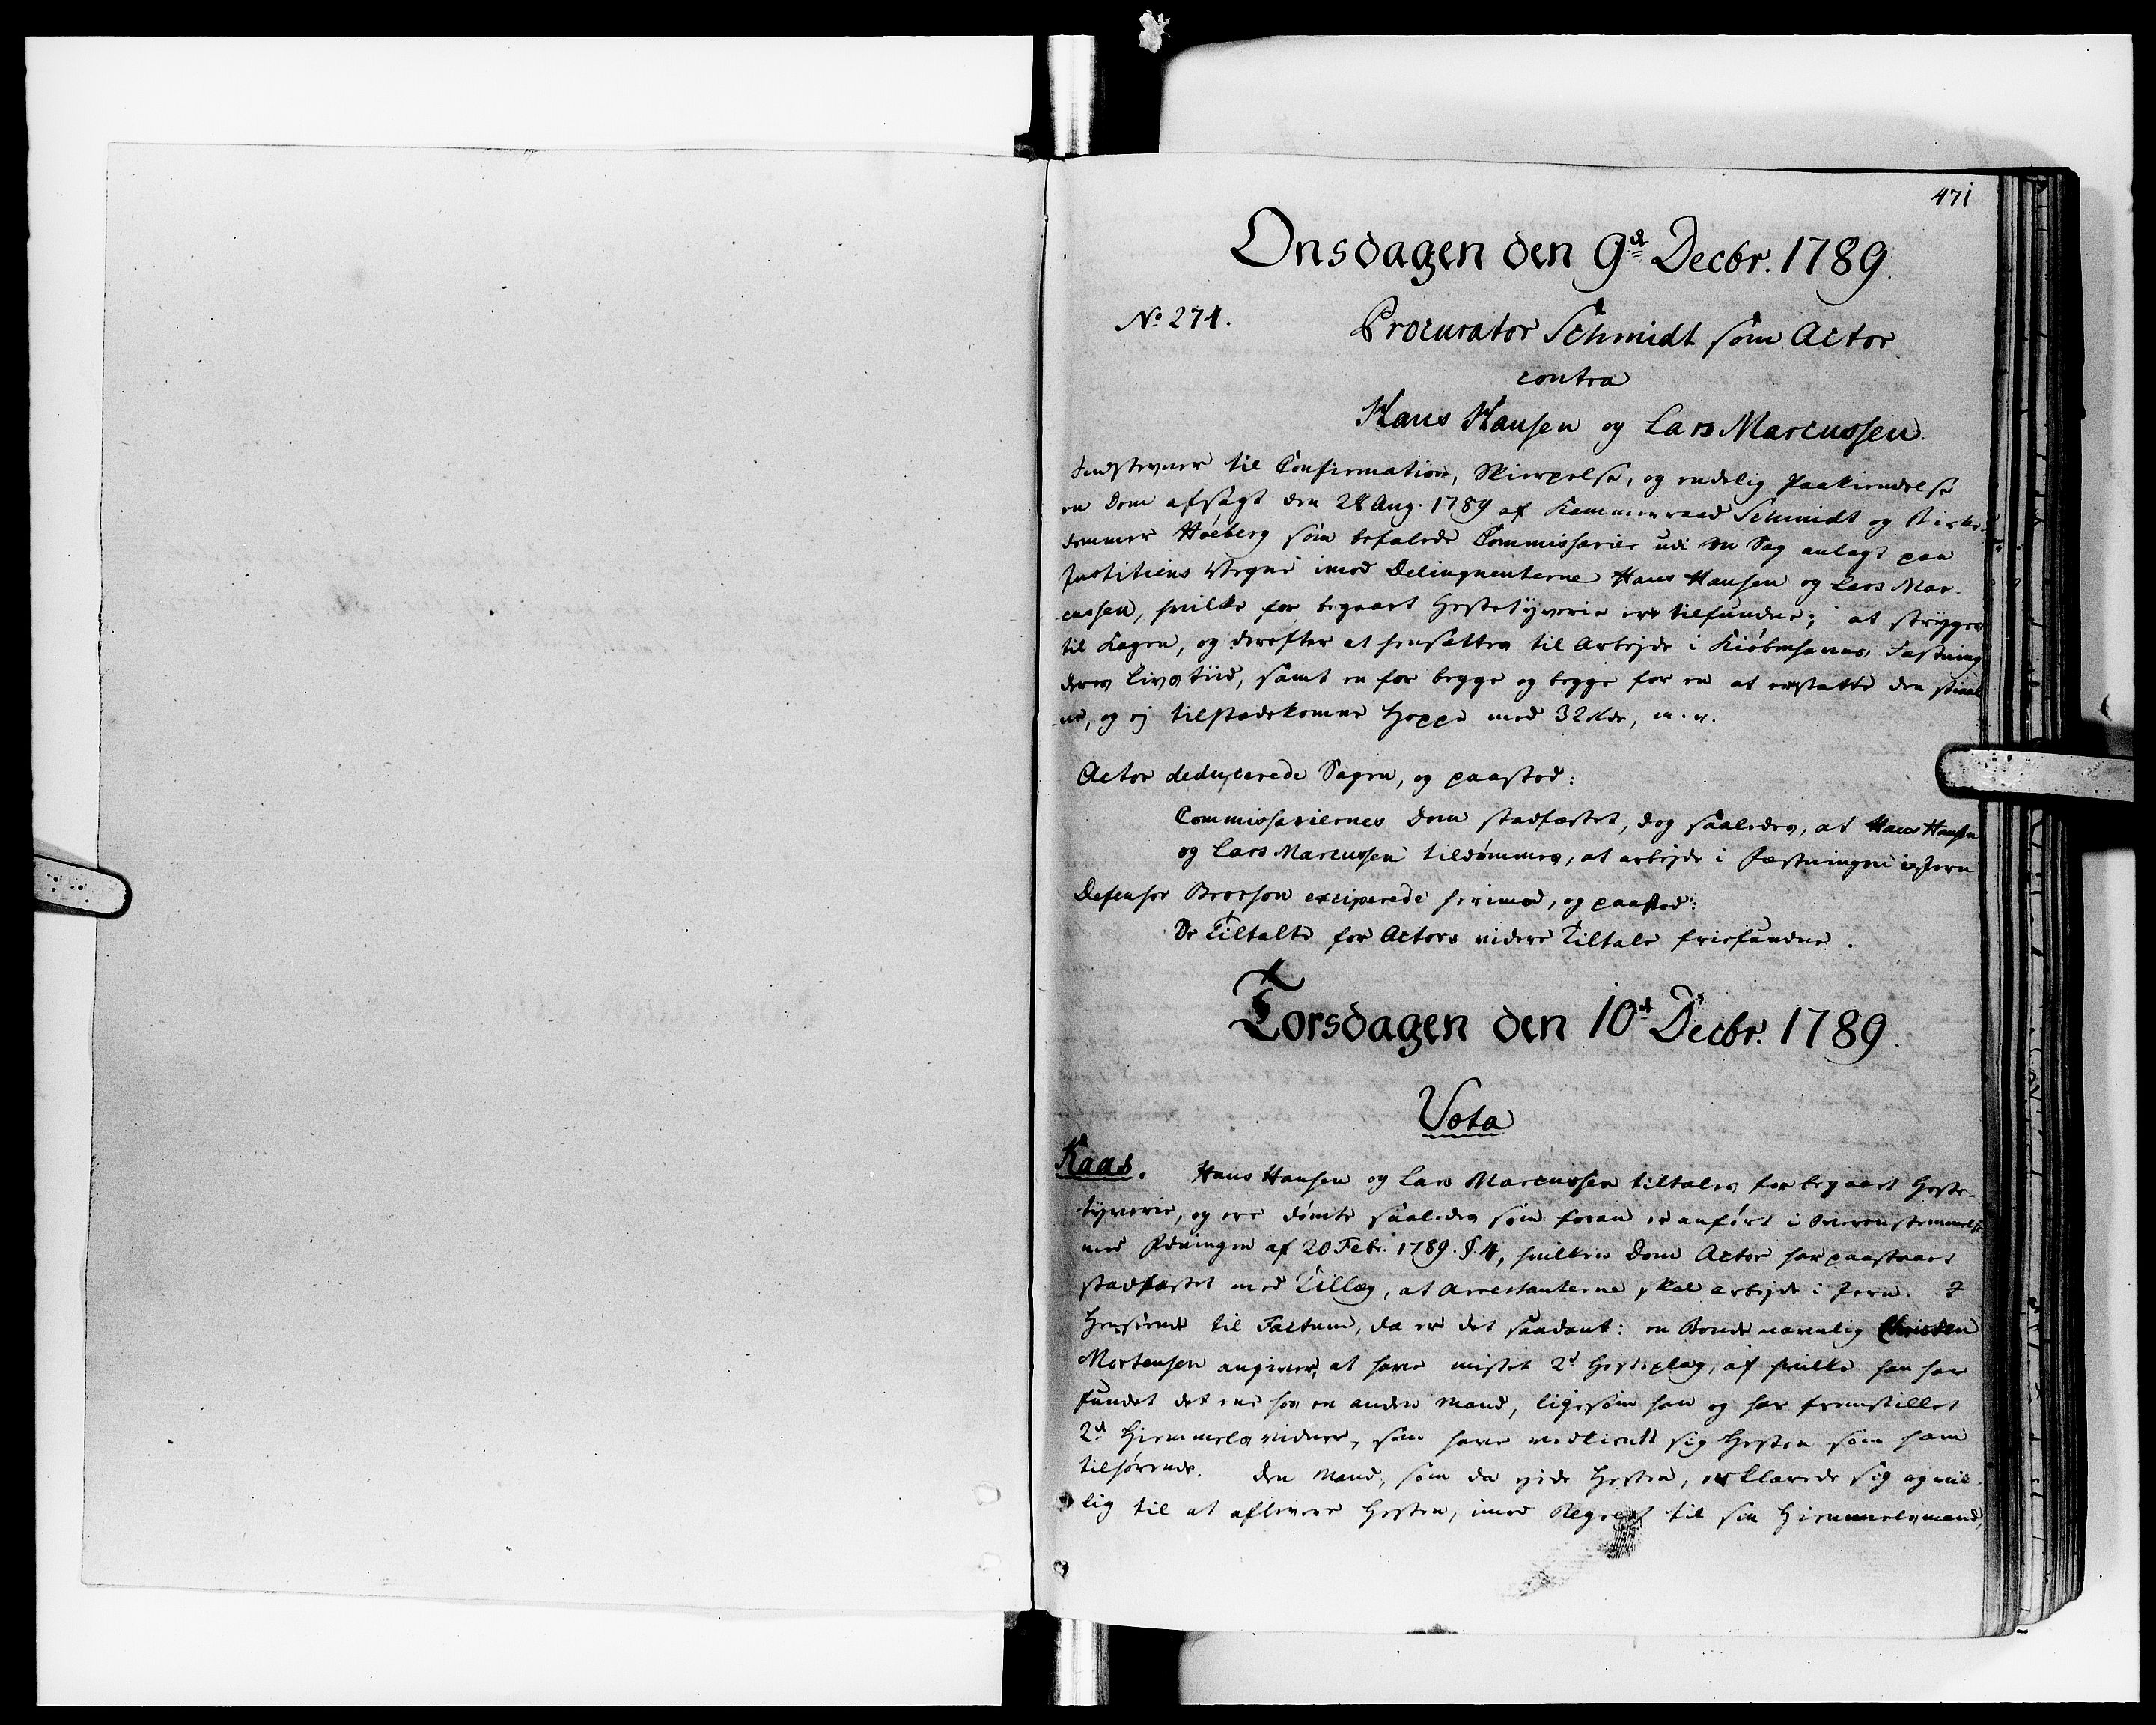 471
Onsdagen den 9de Decbr. 1789.
No 271.
Procurator Schmidt som Actor
contra
Hans Hansen og Lars Marcussen.
Indstevner til Confirmation, Skierpelse, og endelig Paakiendelse
en Dom afsagt den 28 Aug. 1789 af Kammerraad Schmidt og Birke-
dommer Høeberg som befalede Commissarier udi en Sag anlagt paa
Justitiens Vegne imod Delinqventerne Hans Hansen og Lars Mar-
cussen, hvilke for begaaet Hestetyverie ere tilfundne; at stryges
til Kagen, og derefter at hensættes til Arbejde i Kiøbenhavns Fæstning
deres Livs tiid, samt en for begge og begge for en at erstatte den stiaal
ne, og ej tilstædekomne Hoppe med 32 Rdr, m.v.
Actor deducerede Sagen, og paastod:
Commissariernes Dom stadfæstet, dog saaledes, at Hans Hansen
og Lars Marcussen tildømmes, at arbejde i Fæstningen i Jern
Defensor Brorson exciperede herimod, og paastod:
De Tiltalte for Actors videre Tiltale friefundne.
Torsdagen den 10de Decbr. 1789.
Vota
Kaas. Hans Hansen og Lars Marcussen tiltales for begaaet Heste-
tyverie, og ere dømte saaledes som foran er anført i Overenstemmelse
med Fdningen af 20 Feb. 1789. §. 4, hvilken Dom Actor har paastaaet
stadfæstet med Tillæg, at Arrestanterne skal arbejde i Jern. I
Henseende til Factum, da er det saadant: en Bonde navnlig Christen
Mortensen angiver, at have mistet 2de Hesteplag, af hvilke han har
fundet det ene hos en anden Mand, ligesom han og har fremstillet
2de Hiemmelsvidner, som have vedkiendt sig Hesten som ham
tilhørende. Den Mand, som da ejede Hesten, erklærede sig og vil-
lig til at aflevere Hesten, imod Regres til sin Hiemmelsmand,